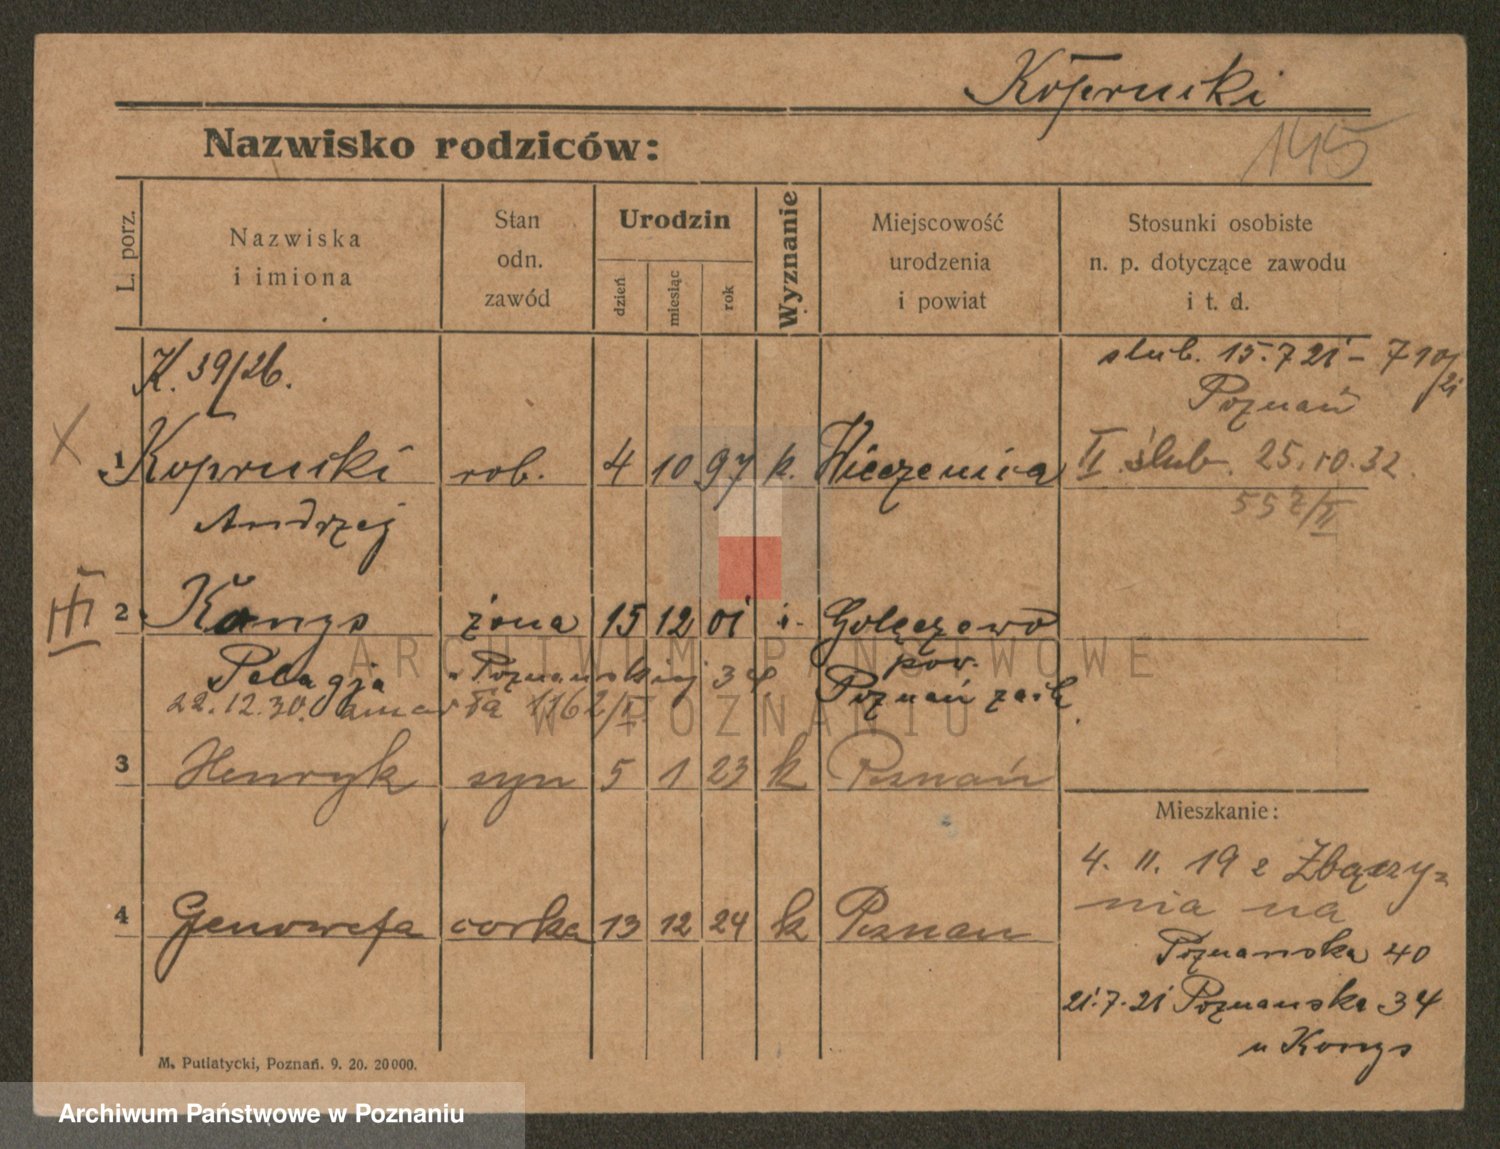 Koprucki
145
Nazwisko rodziców:
L. porz.
Nazwiska
i imiona
Stan
odn.
zawód
Urodzin
dzień
miesiąc
rok
Wyznanie
Miejscowość
urodzenia
i powiat
Stosunki osobiste
n. p. dotyczące zawodu
i t. d.
K. 39/26.
slub. 15.7 21 - 710/21
Poznań
X
1 Koprucki rob. 4 10 97 k. Wieczenica II. ślub. 25.10.32.
Andrzej
III
2 Konys żona 15 12 01 Golęczewo
Pelagja Poznańskiej 34 pow.
Poznań zach.
22.12.30. umarła 1162/II
3 Henryk syn 5 1 23 k Poznań
Mieszkanie:
4. II. 19 z Zbąszy-
nia na
4 Genowefa corka 13 12 24 k Poznan
Poznanska 40
21.7.21 Poznanska 34
u Konys
M. Putiatycki, Poznań. 9. 20. 20000.
ARCHIWUM PAŃSTWOWE
W POZNANIU
Archiwum Państwowe w Poznaniu